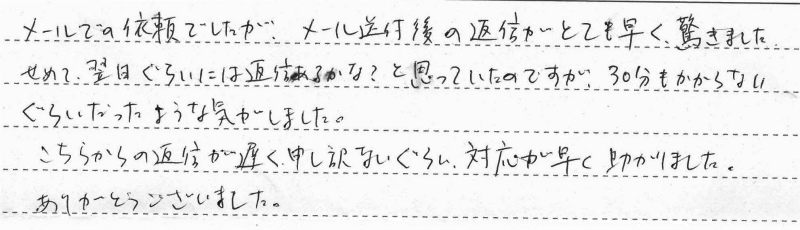 メールでの依頼でしたが、メール送付後の返信がとても早く、驚きました。
せめて、翌日ぐらいには返信あるかな？と思っていたのですが、30分もかからない
ぐらいだったような気がしました。
こちらからの返信が遅く、申し訳ないぐらい、対応が早く助かりました。
ありがとうございました。